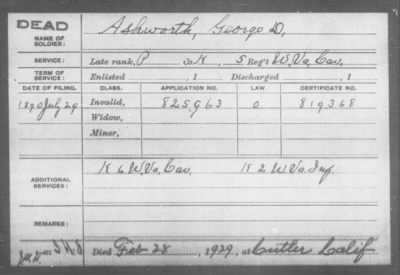 DEAD
NAME OF SOLDIER: Ashworth, George D,
SERVICE: Late rank, P Co K, 5 Reg't W. Va, Cav,
TERM OF SERVICE: Enlisted , 1 Discharged , 1
DATE OF FILING. CLASS. APPLICATION NO. LAW. CERTIFICATE NO.
1890 July 29 Invalid, 825963 0 819368
Widow,
Minor,
ADDITIONAL SERVICES: K 6 W. Va, Cav. K 2 W. Va, Inf.
REMARKS:
Died Feb 28, 1929, at Cutler Calif